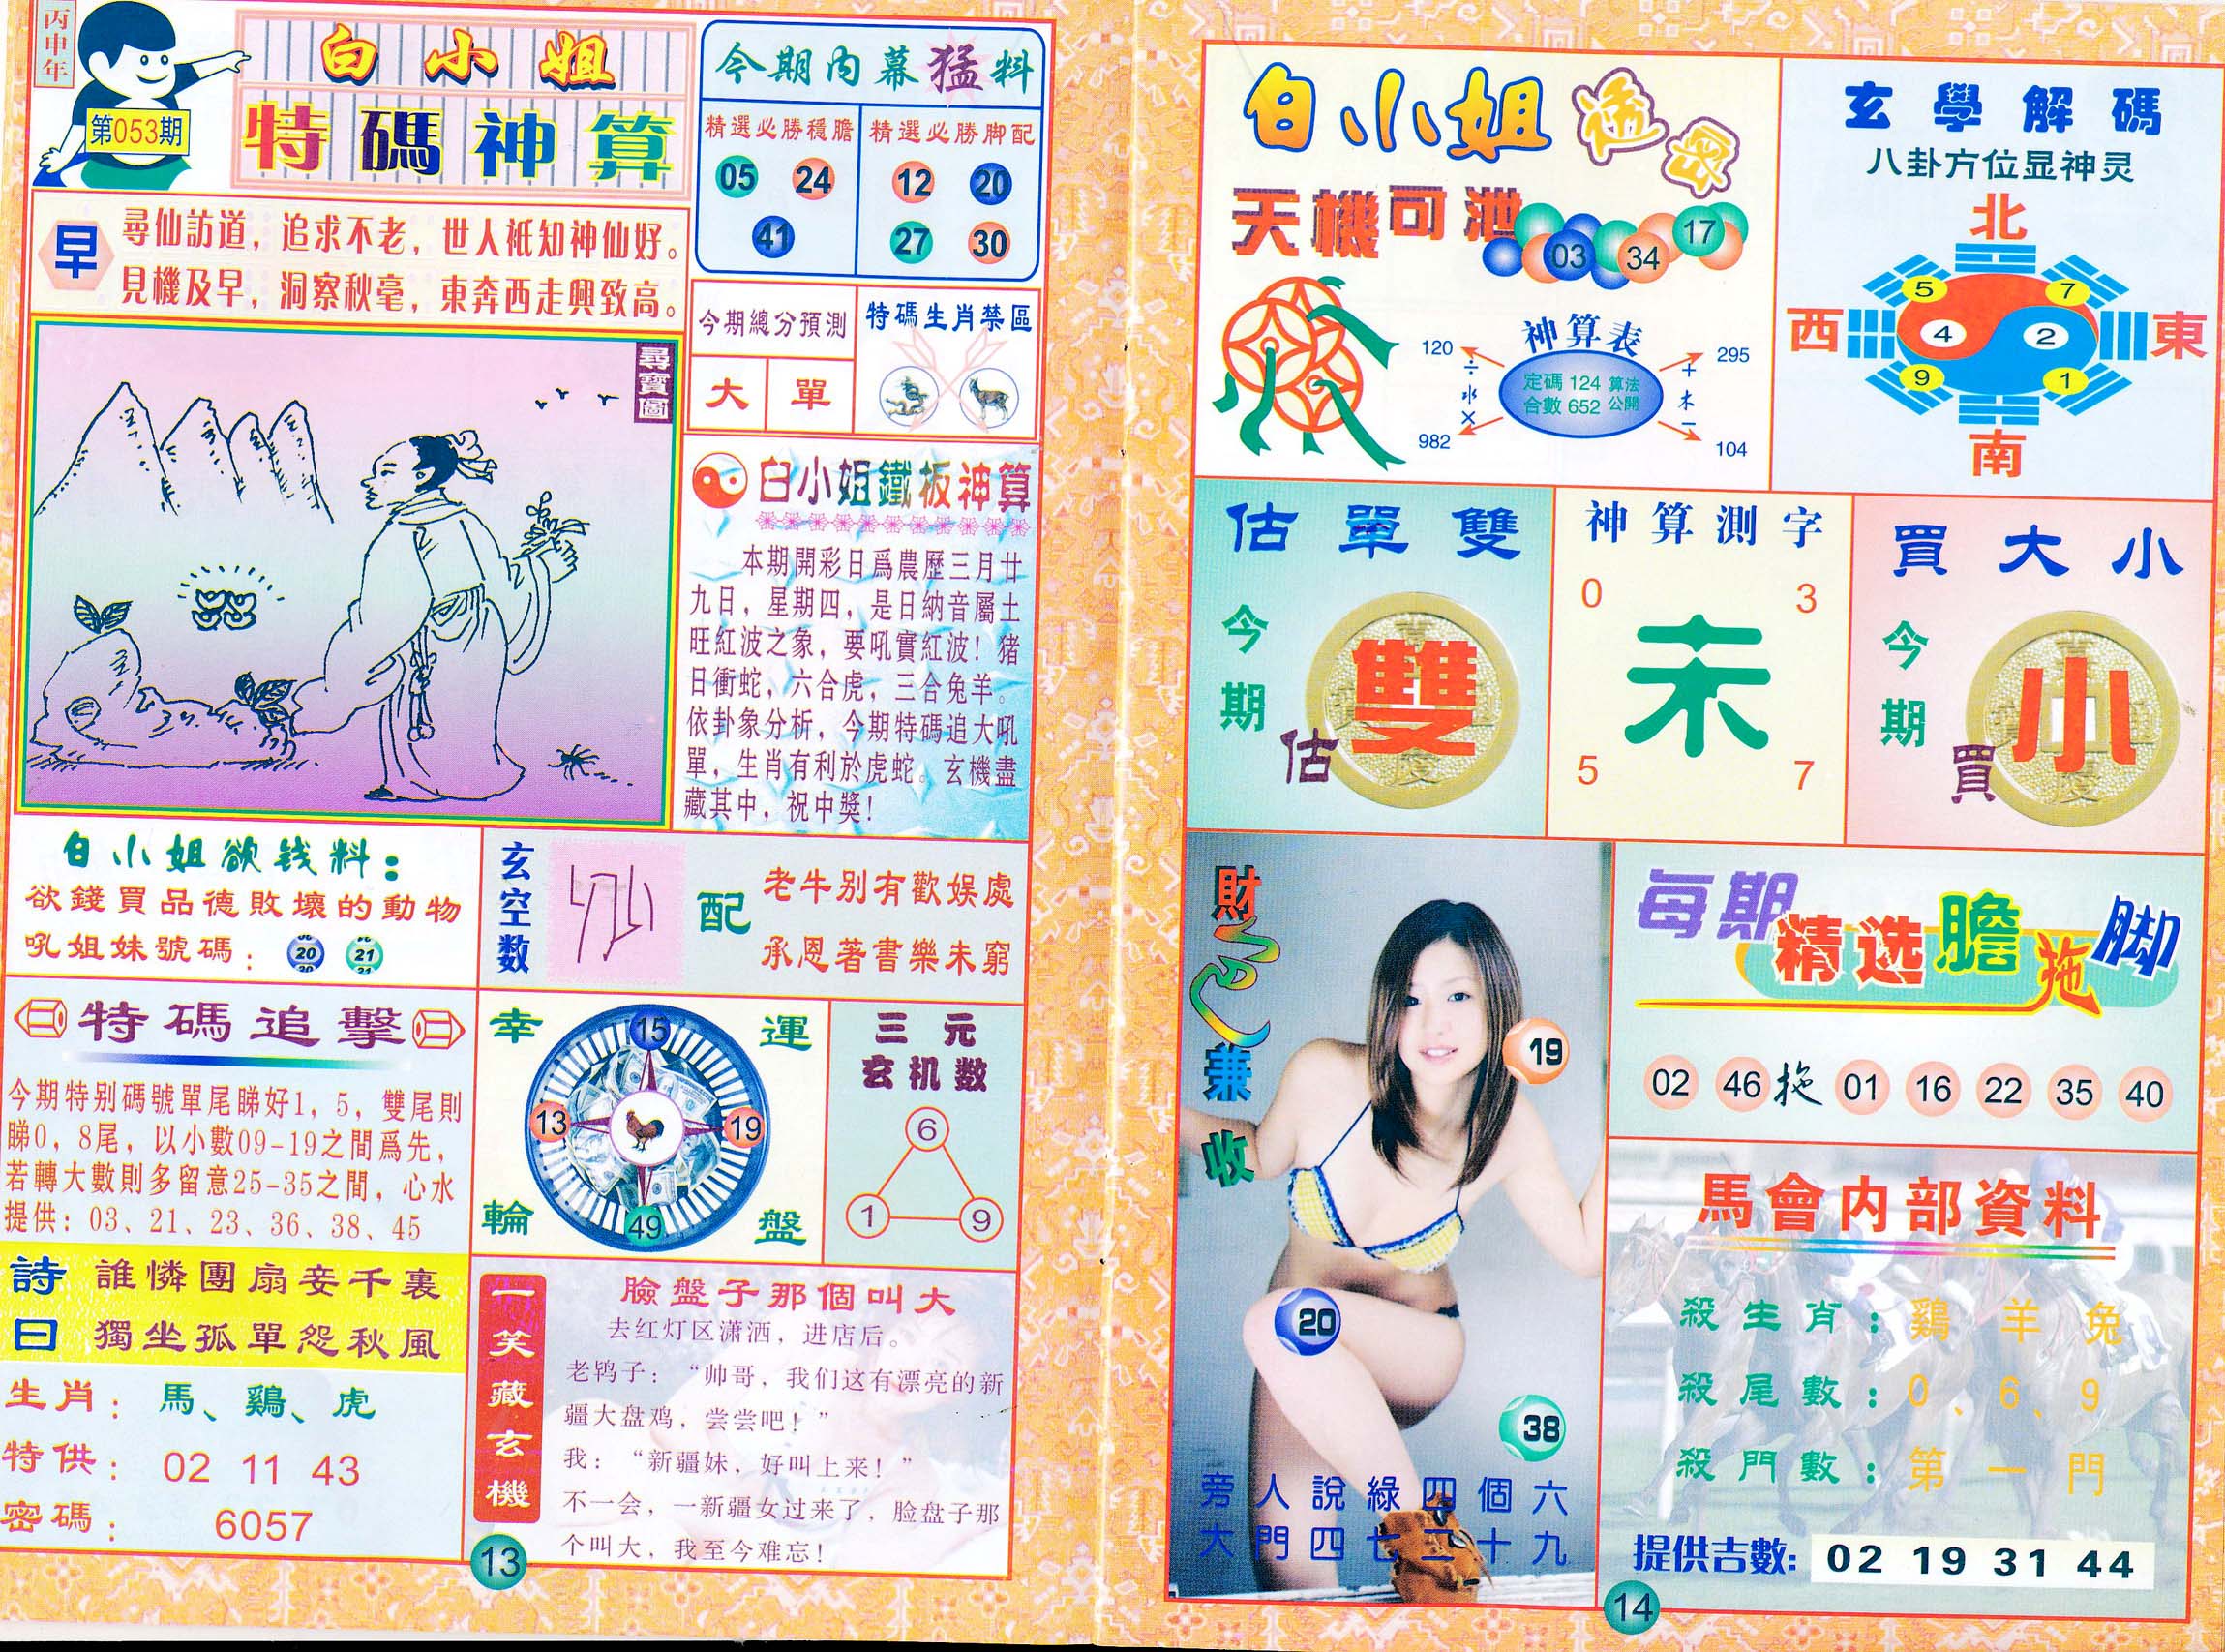 丙申年
第053期
白小姐
特碼神算
早
尋仙訪道，追求不老，世人祇知神仙好。
見機及早，洞察秋毫，東奔西走興致高。
尋寶圖
今期内幕猛料
精選必勝穩膽
05 24
41
精選必勝脚配
12 20
27 30
今期總分預測
大 單
特碼生肖禁區
白小姐鐵板神算
本期開彩日爲農歷三月廿
九日，星期四，是日納音屬土
旺紅波之象，要吼實紅波！猪
日衝蛇，六合虎，三合兔羊。
依卦象分析，今期特碼追大吼
單，生肖有利於虎蛇。玄機盡
藏其中，祝中獎！
白小姐欲钱料：
欲錢買品德敗壞的動物
吼姐妹號碼： 20 21
玄空数
配
老牛别有歡娱處
承恩著書樂未窮
特碼追擊
今期特别碼號單尾睇好1，5，雙尾則
睇0，8尾，以小數09-19之間爲先，
若轉大數則多留意25-35之間，心水
提供：03、21、23、36、38、45
幸運輪盤
15
13 19
49
三元
玄机数
6
1 9
詩曰
誰憐團扇妾千裏
獨坐孤單怨秋風
生肖：馬、鷄、虎
特供：02 11 43
密碼：6057
一笑藏玄機
臉盤子那個叫大
去红灯区潇洒，进店后。
老鸨子：“帅哥，我们这有漂亮的新
疆大盘鸡，尝尝吧！”
我：“新疆妹，好叫上来！”
不一会，一新疆女过来了，脸盘子那
个叫大，我至今难忘！
13
白小姐透密
天機可泄
03 34 17
神算表
120 ÷ 水 × 982
定碼 124 算法
合數 652 公開
295 + 木 − 104
玄學解碼
八卦方位显神灵
北
西 東
南
5 7
4 2
9 1
估單雙
今期
估
雙
神算測字
0 3
未
5 7
買大小
今期
買
小
財色兼收
19
20
38
旁人說綠四個六
大門四七二十九
每期精选膽拖脚
02 46 拖 01 16 22 35 40
馬會内部資料
殺生肖：鷄 羊 兔
殺尾數：0、6、9
殺門數：第一門
提供吉數：02 19 31 44
14